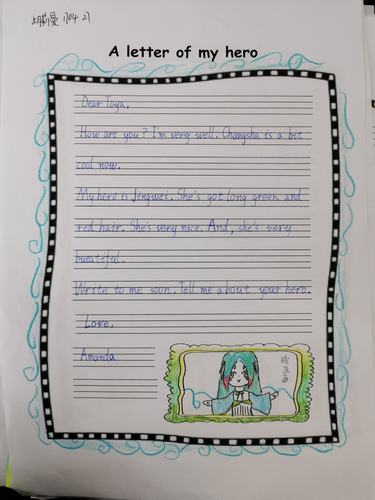 胡勒曼 1704 21
A letter of my hero
Dear Toya,
How are you? I'm very well. Changsha is a bit
cool now.
My hero is Jingwei. She's got long green and
red hair. She's very nice. And, she's very
bueatiful.
Write to me soon. Tell me about your hero.
Love,
Amanda